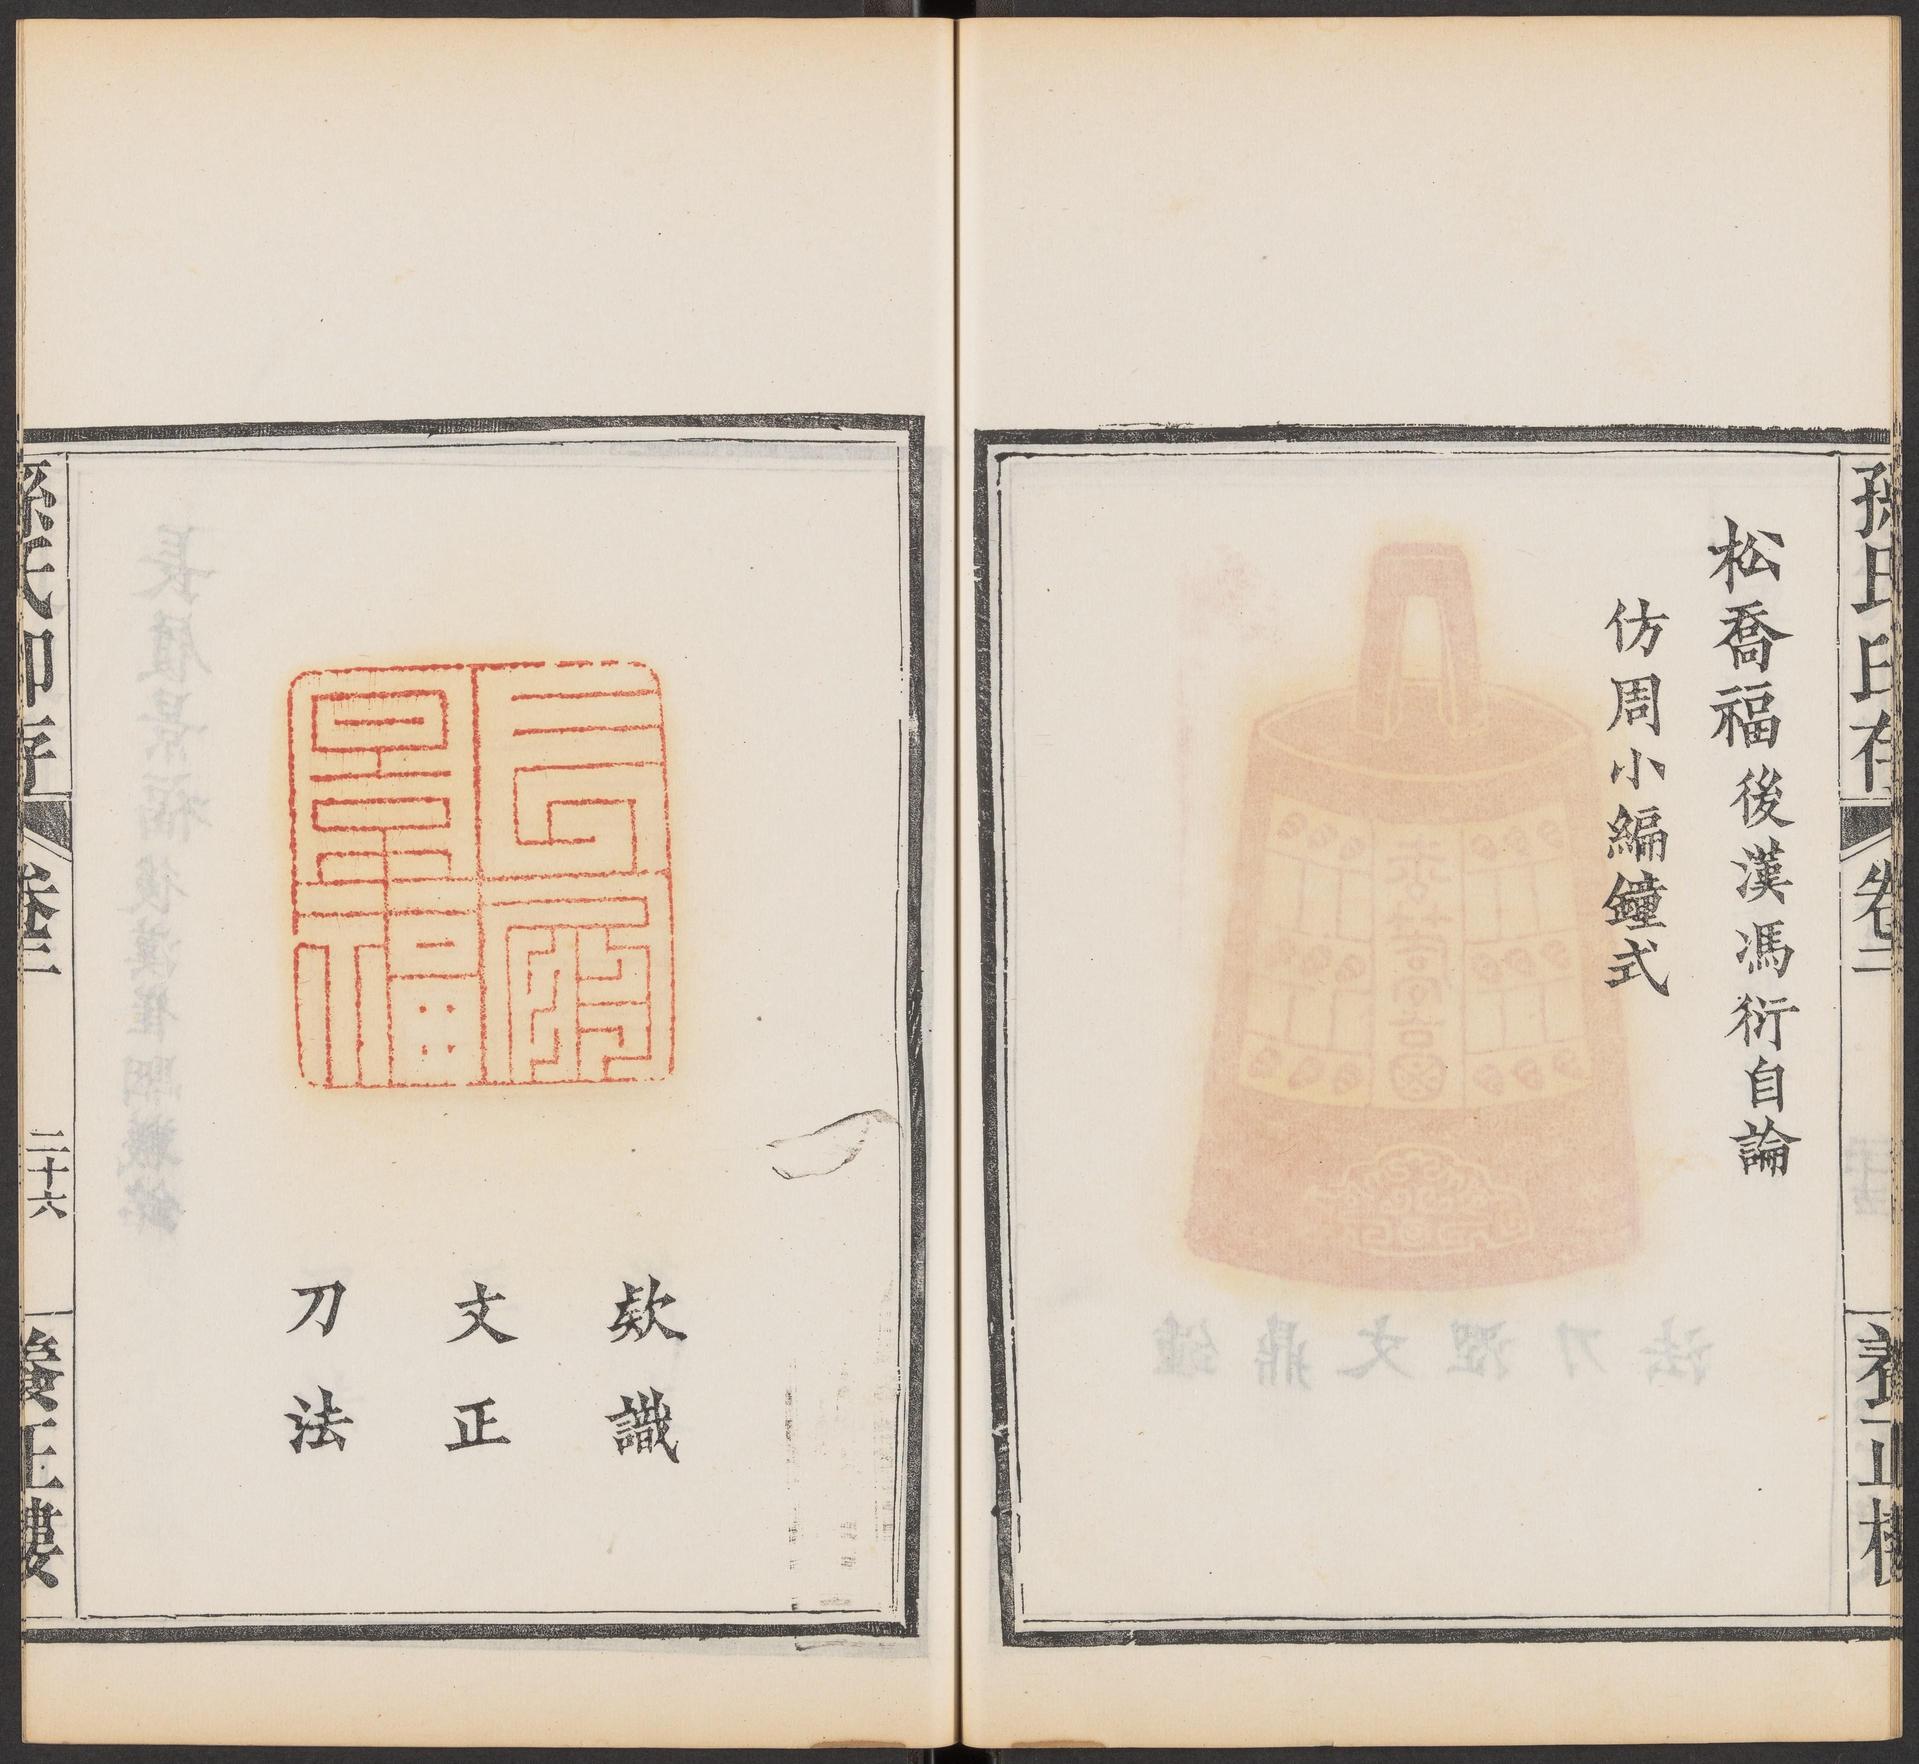 孫氏印存
卷二
養正樓
松喬福後漢馮衍自論
仿周小編鐘式
長履景福
欵識
文正
刀法
孫氏印存
卷二
二十六
養正樓